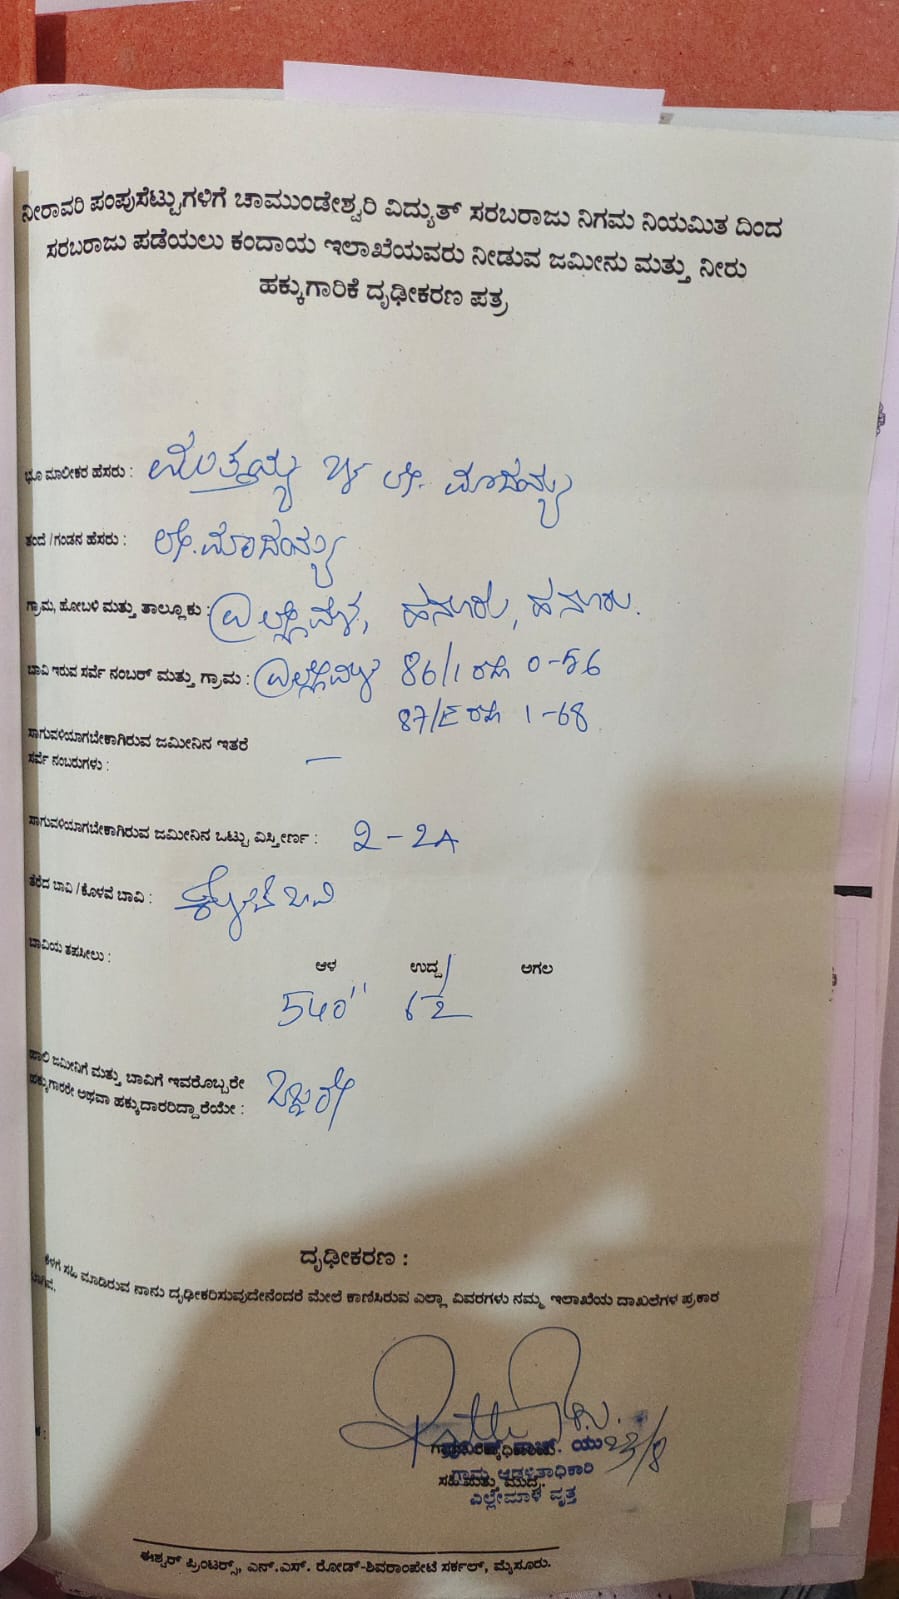 ನೀರಾವರಿ ಪಂಪುಸೆಟ್ಟುಗಳಿಗೆ ಚಾಮುಂಡೇಶ್ವರಿ ವಿದ್ಯುತ್ ಸರಬರಾಜು ನಿಗಮ ನಿಯಮಿತ ದಿಂದ
ಸರಬರಾಜು ಪಡೆಯಲು ಕಂದಾಯ ಇಲಾಖೆಯವರು ನೀಡುವ ಜಮೀನು ಮತ್ತು ನೀರು
ಹಕ್ಕುಗಾರಿಕೆ ದೃಢೀಕರಣ ಪತ್ರ
ಭೂ ಮಾಲೀಕರ ಹೆಸರು : ಮುತ್ತಯ್ಯ ಲೇ. ಮಾದಯ್ಯ
ತಂದೆ /ಗಂಡನ ಹೆಸರು : ಲೇ. ಮಾದಯ್ಯ
ಗ್ರಾಮ, ಹೋಬಳಿ ಮತ್ತು ತಾಲ್ಲೂಕು : ಹನೂರು, ಹನೂರು.
ಬಾವಿ ಇರುವ ಸರ್ವೆ ನಂಬರ್ ಮತ್ತು ಗ್ರಾಮ : 86/1 0-56
1-68
ಸಾಗುವಳಿಯಾಗಬೇಕಾಗಿರುವ ಜಮೀನಿನ ಇತರೆ
ಸರ್ವೆ ನಂಬರುಗಳು : —
ಸಾಗುವಳಿಯಾಗಬೇಕಾಗಿರುವ ಜಮೀನಿನ ಒಟ್ಟು ವಿಸ್ತೀರ್ಣ :
ತೆರೆದ ಬಾವಿ /ಕೊಳವೆ ಬಾವಿ : ಕೊಳವೆ ಬಾವಿ
ಬಾವಿಯ ತಪಸೀಲು :
ಆಳ ಉದ್ದ ಅಗಲ
540''
ಹಾಲಿ ಜಮೀನಿಗೆ ಮತ್ತು ಬಾವಿಗೆ ಇವರೊಬ್ಬರೇ
ಹಕ್ಕುಗಾರರೇ ಅಥವಾ ಹಕ್ಕುದಾರರಿದ್ದಾರೆಯೇ : ಒಬ್ಬರೇ
ದೃಢೀಕರಣ :
ಕೆಳಗೆ ಸಹಿ ಮಾಡಿರುವ ನಾನು ದೃಢೀಕರಿಸುವುದೇನೆಂದರೆ ಮೇಲೆ ಕಾಣಿಸಿರುವ ಎಲ್ಲಾ ವಿವರಗಳು ನಮ್ಮ ಇಲಾಖೆಯ ದಾಖಲೆಗಳ ಪ್ರಕಾರ
23/8
ಗ್ರಾಮ ಆಡಳಿತಾಧಿಕಾರಿ
ಸಹಿ ಮತ್ತು ಮುದ್ರೆ.
ಎಲ್ಲೇಮಾಳ ವೃತ್ತ
ಈಶ್ವರ್ ಪ್ರಿಂಟರ್ಸ್, ಎನ್.ಎಸ್. ರೋಡ್-ಶಿವರಾಂಪೇಟೆ ಸರ್ಕಲ್, ಮೈಸೂರು.